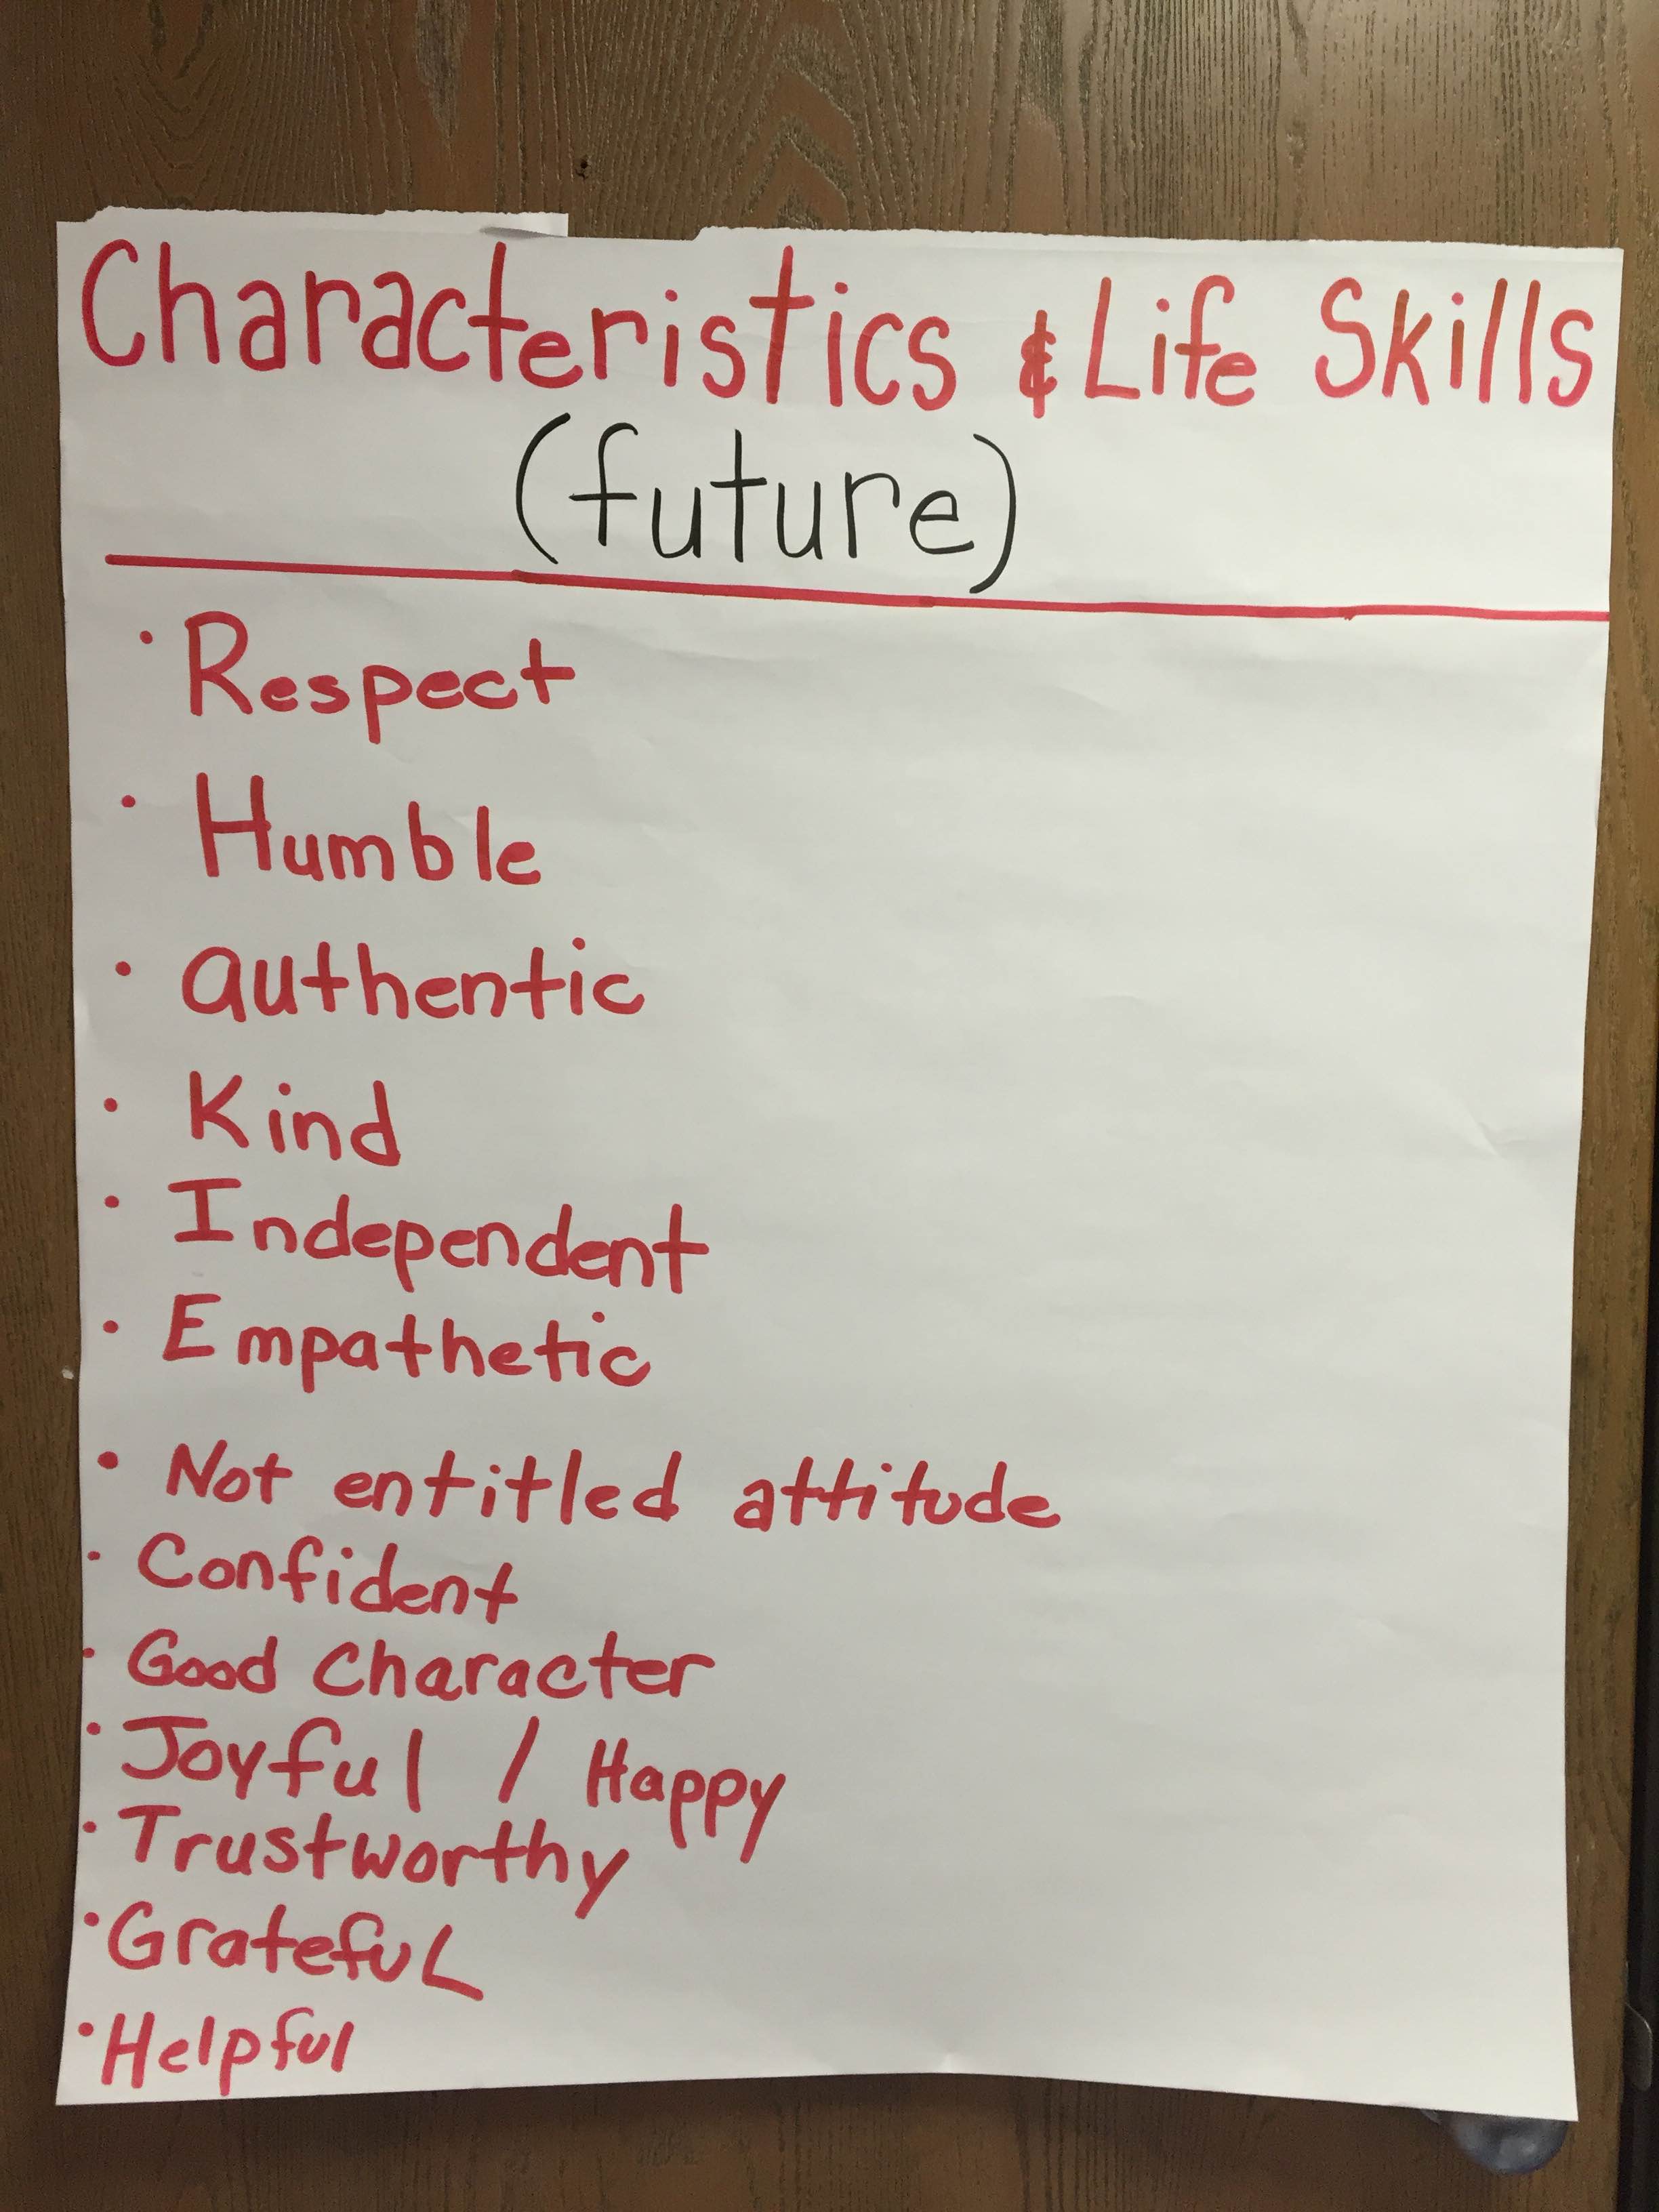 Characteristics & Life Skills
(future)
· Respect
· Humble
· authentic
· Kind
· Independent
· Empathetic
· Not entitled attitude
· Confident
· Good character
· Joyful / Happy
· Trustworthy
· GratefuL
· Helpful